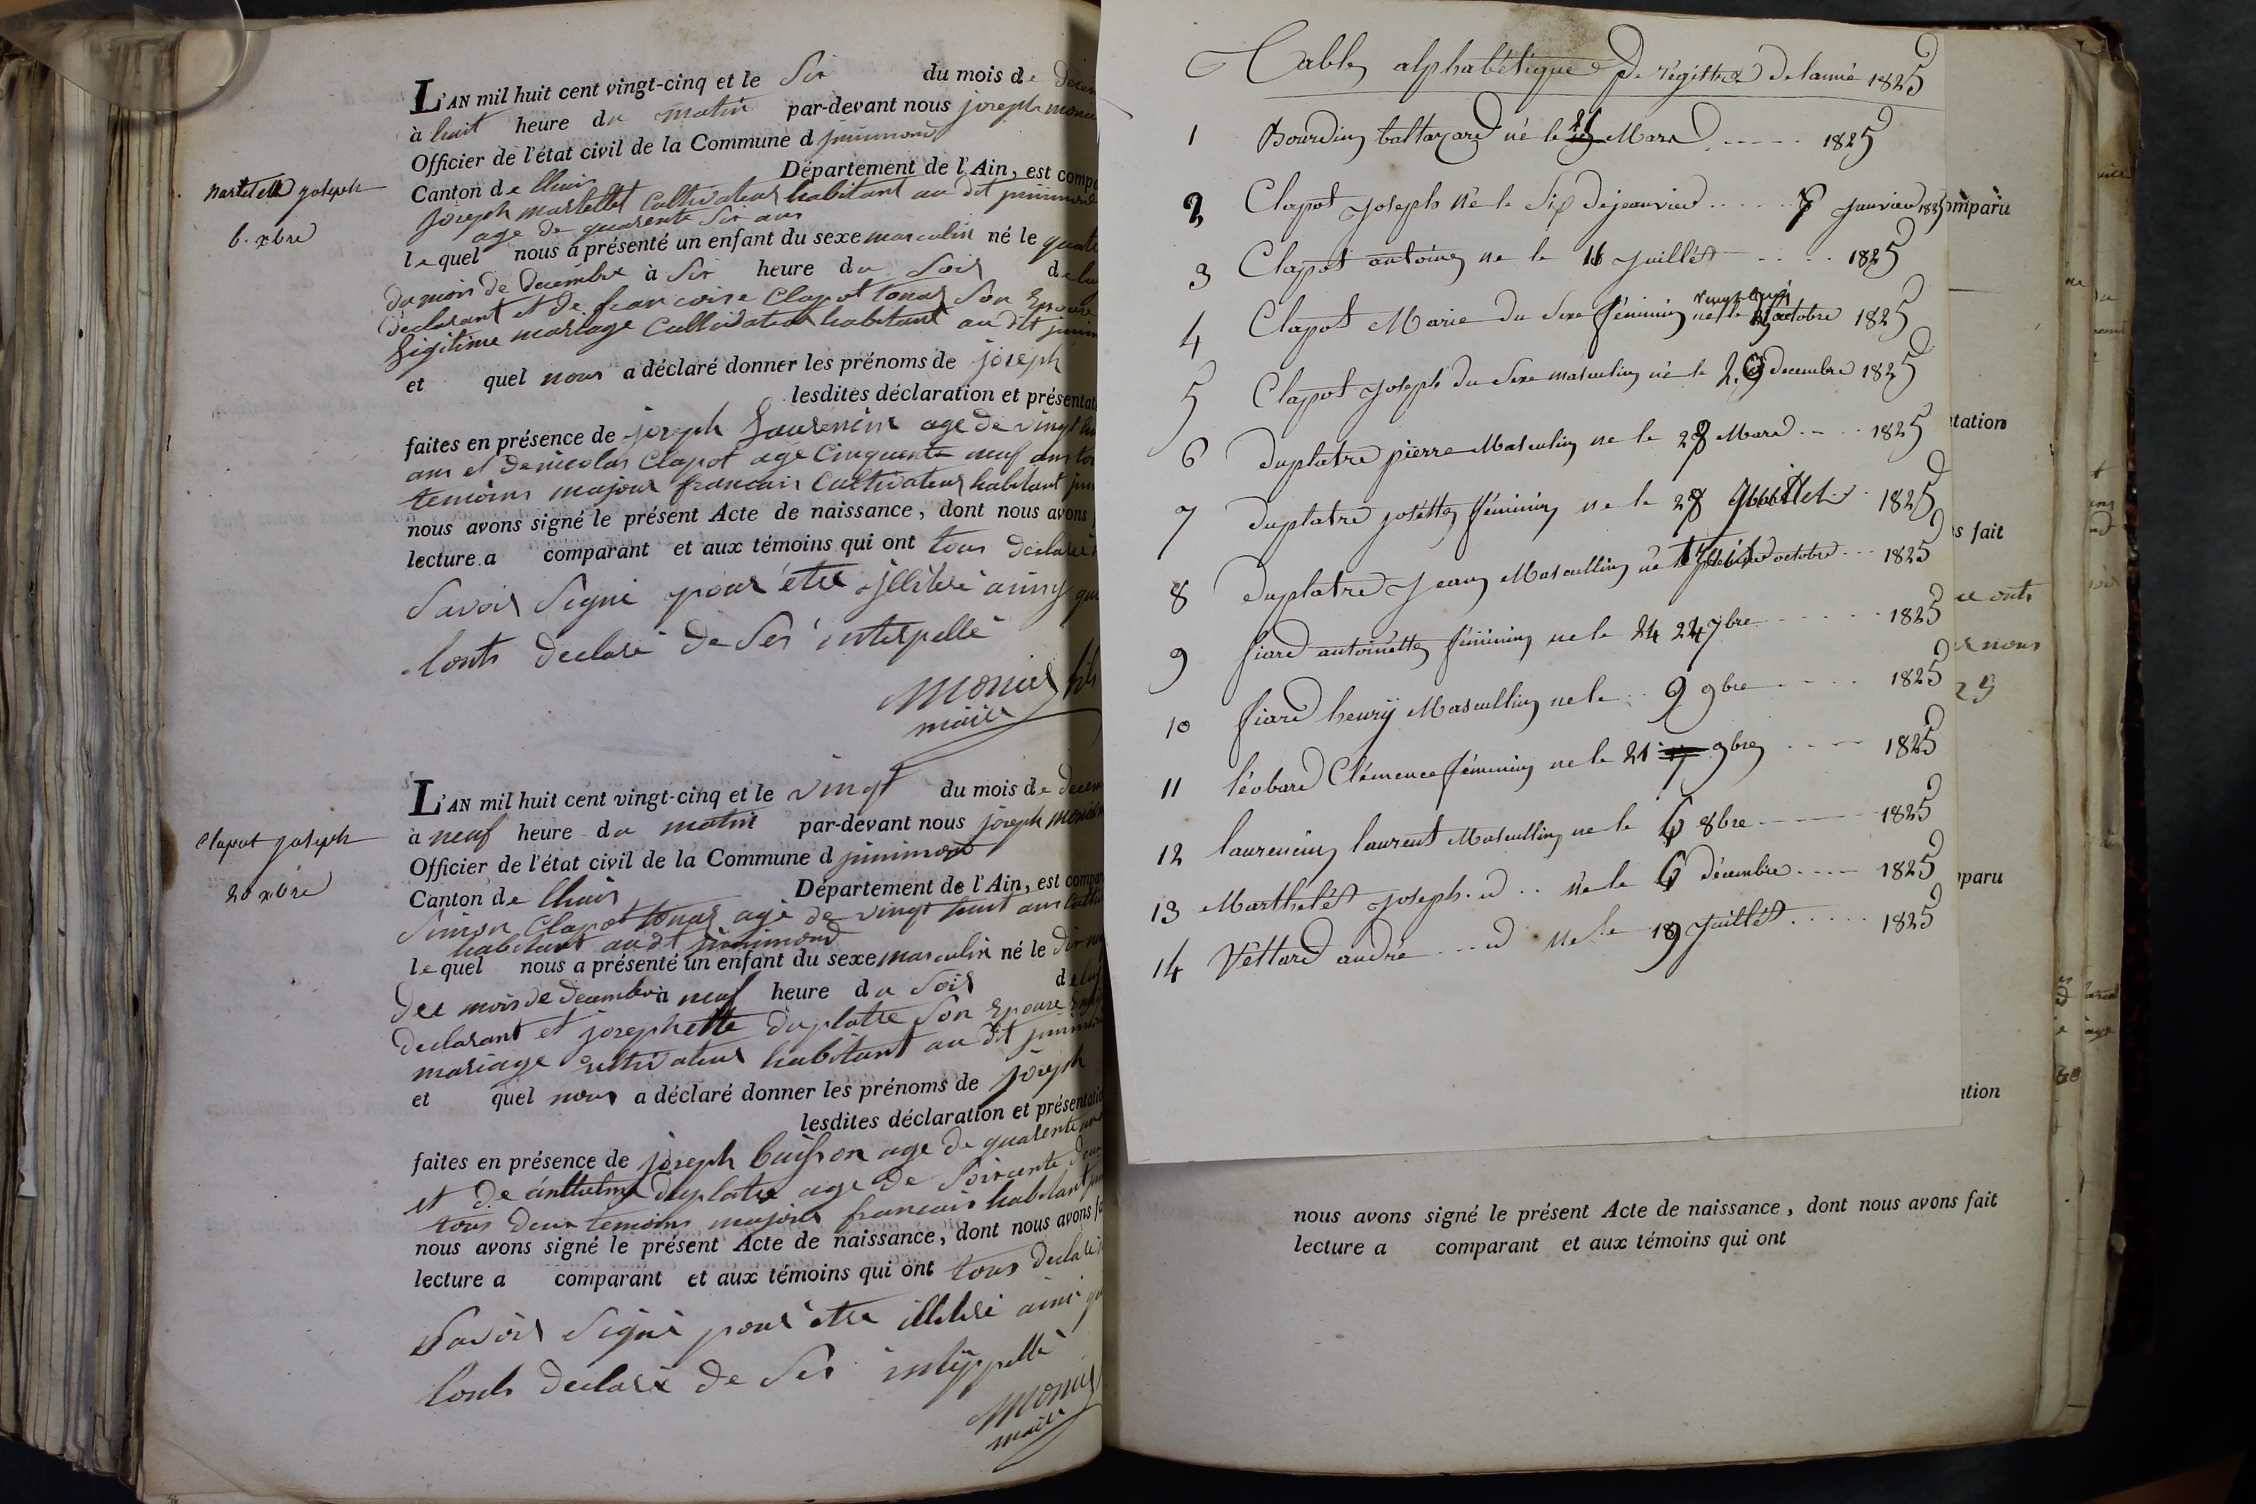 L'AN mil huit cent vingt-cinq et le Six du mois de décem
à huit heure du matin par-devant nous joseph monie
Officier de l'état civil de la Commune d jnnimond
Canton de lhuis Département de l'Ain, est compa
joseph martellet Cultivateur habitant au dit jnnimond
age de quarente Six ans
lequel nous a présenté un enfant du sexe masculin né le quatr
du mois de Decembre à Six heure du Soir de luy
declarant et de francoise Clapot tonas Son Epouse
Legitime mariage Cultivateur habitant au dit jnnim
et quel nous a déclaré donner les prénoms de joseph
lesdites déclaration et présentati
faites en présence de joseph Laurencin age de vingt
ans et de nicolas Clapot age Cinquente neuf ans to
temoins majour francais Cultivateur habitant jnn
nous avons signé le présent Acte de naissance, dont nous avons
lecture a comparant et aux témoins qui ont tous declaré
Savoir Signé pour être jllitéré ainsy que
lonts declaré de Ses interpellé
monier fils
maire
Martelett joseph
6. xbre
L'AN mil huit cent vingt-cinq et le vingt du mois de decem
à neuf heure du matin par-devant nous joseph monier
Officier de l'état civil de la Commune d jnnimond
Canton de lhuis Département de l'Ain, est compar
Simon Clapot tonas agé de vingt huit ans Cultiv
habitant au dt jnnimond
lequel nous a présenté un enfant du sexe masculin né le dix ne
des mois de decembre à neuf heure du Soir de luy
declarant et josephette Duplatre Son Epouse
mariage Cultivateur habitant au dit jnnimon
et quel nous a déclaré donner les prénoms de joseph
lesdites déclaration et présentatio
faites en présence de joseph buisson age de quarente
et de anthelme Duplatre age de Soixcente deux
tous deux temoins majour francais habitant jnn
nous avons signé le présent Acte de naissance, dont nous avons fa
lecture a comparant et aux témoins qui ont tous declaré
Savoir Signé pour être illiteré ainsi qu
lonts declaré de Ses interppellé
monier
maire
Clapot joseph
20 xbre
Table alphabétique De régistre de lanné 1825
1 Bourdin baltazard né le 21 Mars 1825
2 Clapot joseph né le Six de jeanvier 8 janvier 1825
3 Clapot antoine ne le 16 juillet 1825
4 Clapot Marie du Sexe féminin née le vingt cinq octobre 1825
5 Clapot joseph du Sexe masculin né le 20 decembre 1825
6 duplatre pierre Masculin ne le 28 Mars 1825
7 duplatre josette féminin ne le 28 juillet 1825
8 duplatre Jean Masculin né octobre 1825
9 fiard antoinette féminin ne le 24 24 7bre 1825
10 fiard henrÿ Masculin ne le 9 9bre 1825
11 léobard Clémence féminin ne le 21 9bre 1825
12 laurencin laurent Masculin ne le 6 8bre 1825
13 Marthelet joseph. id né le 6 décembre 1825
14 Vettard andré id Ne le 19 juillet 1825
omparu
tation
s fait
ce onts
nous
25
paru
ation
nous avons signé le présent Acte de naissance, dont nous avons fait
lecture a comparant et aux témoins qui ont